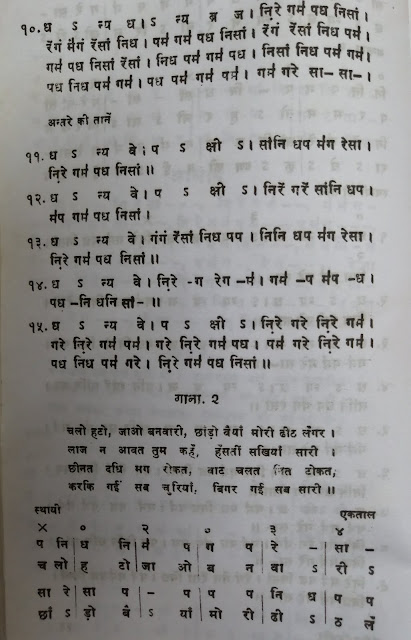 १०. ध ऽ न्य ध । ऽ न्य ब्र ज । नि़रे गर्म पध निसां ।
रेंगं र्मंगं रेंसां निध । पर्म गर्म पध निसां । रेंगं रेंसां निध पर्म ।
गर्म पध निसां रेंसां । निध पर्म गर्म पध । निसां निध पर्म गर्म ।
पध निध पर्म गर्म । पध पर्म गर्म पर्म । गर्म गरे सा- सा- ।
अन्तरे की तानें
११. ध ऽ न्य वे । प ऽ क्षी ऽ । सांनि धप र्मग रेसा ।
नि़रे गर्म पध निसां ॥
१२. ध ऽ न्य वे । प ऽ क्षी ऽ । निरें गंरें सांनि धप ।
र्मप गर्म पध निसां ।
१३. ध ऽ न्य वे । गंगं रेंसां निध पप । निनि धप र्मग रेसा ।
नि़रे गर्म पध निसां ॥
१४. ध ऽ न्य वे । नि़रे -ग रेग -र्म । गर्म -प र्मप -ध ।
पध -नि धनि सां- ॥
१५. ध ऽ न्य वे । प ऽ क्षी ऽ । नि़रे गरे नि़रे गर्म ।
गरे नि़रे गर्म पर्म । गरे नि़रे गर्म पध । पर्म गरे नि़रे गर्म ।
पध निध पर्म गरे । नि़रे गर्म पध निसां ॥
गाना. २
चलो हटो, जाओ बनवारी, छांड़ो बैयाँ मोरी ढीट लँगर ।
लाज न आवत तुम कहँ, हँसतीं सखियाँ सारी ।
छीनत दधि मग रोकत, वाट चलत नित टोकत,
करकि गईं सब चुरियाँ, बिगर गई सब सारी ॥
स्थायी एकताल
× ० २ ० ३ ४
प नि | ध नि | र्म प | ग प | रे - | सा -
च लो | ह टो | जा ओ | ब न | वा ऽ | री ऽ
सा रे | सा प | - प | प प | नि ध | प प
छाँ ऽ | ड़ो बै | ऽ याँ | मो री | ढी ऽ | ठ लँ